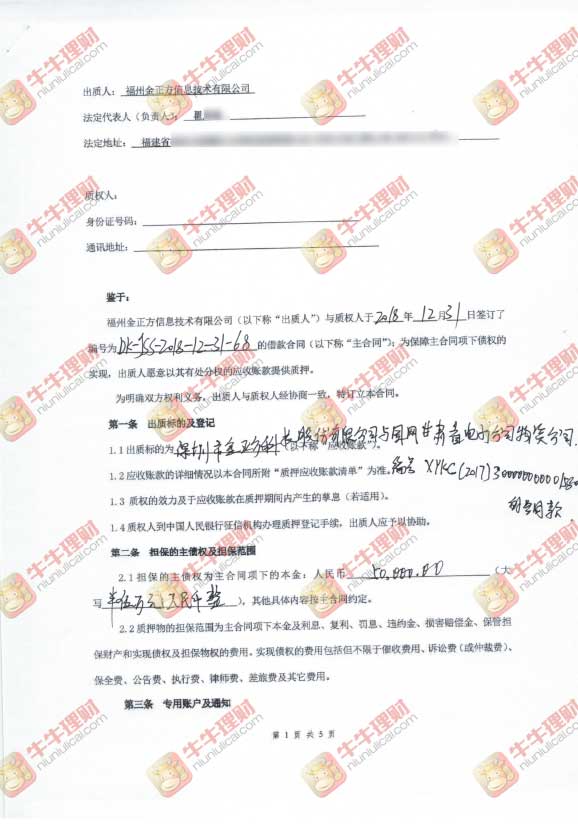 出质人：福州金正方信息技术有限公司
法定代表人（负责人）：瞿
法定地址：福建省
质权人：
身份证号码：
通讯地址：
鉴于：
福州金正方信息技术有限公司（以下称“出质人”）与质权人于2018年12月31日签订了
编号为DK-JSS-2018-12-31-68的借款合同（以下称“主合同”）；为保障主合同项下债权的
实现，出质人愿意以其有处分权的应收账款提供质押。
为明确双方权利义务，出质人与质权人经协商一致，特订立本合同。
第一条 出质标的及登记
1.1 出质标的为深圳市金正方科技股份有限公司与国网甘肃省电力公司物资公司（以下称“应收账款”）。
1.2 应收账款的详细情况以本合同所附“质押应收账款清单”为准。编号
1.3 质权的效力及于应收账款在质押期间内产生的孳息（若适用）。
1.4 质权人到中国人民银行征信机构办理质押登记手续，出质人应予以协助。
第二条 担保的主债权及担保范围
2.1 担保的主债权为主合同项下的本金：人民币 50,000.00（大
写 ），其他具体内容按主合同约定。
2.2 质押物的担保范围为主合同项下本金及利息、复利、罚息、违约金、损害赔偿金、保管担
保财产和实现债权及担保物权的费用。实现债权的费用包括但不限于催收费用、诉讼费（或仲裁费）、
保全费、公告费、执行费、律师费、差旅费及其它费用。
第三条 专用账户及通知
第 1 页 共 5 页
牛牛理财
niuniulicai.com